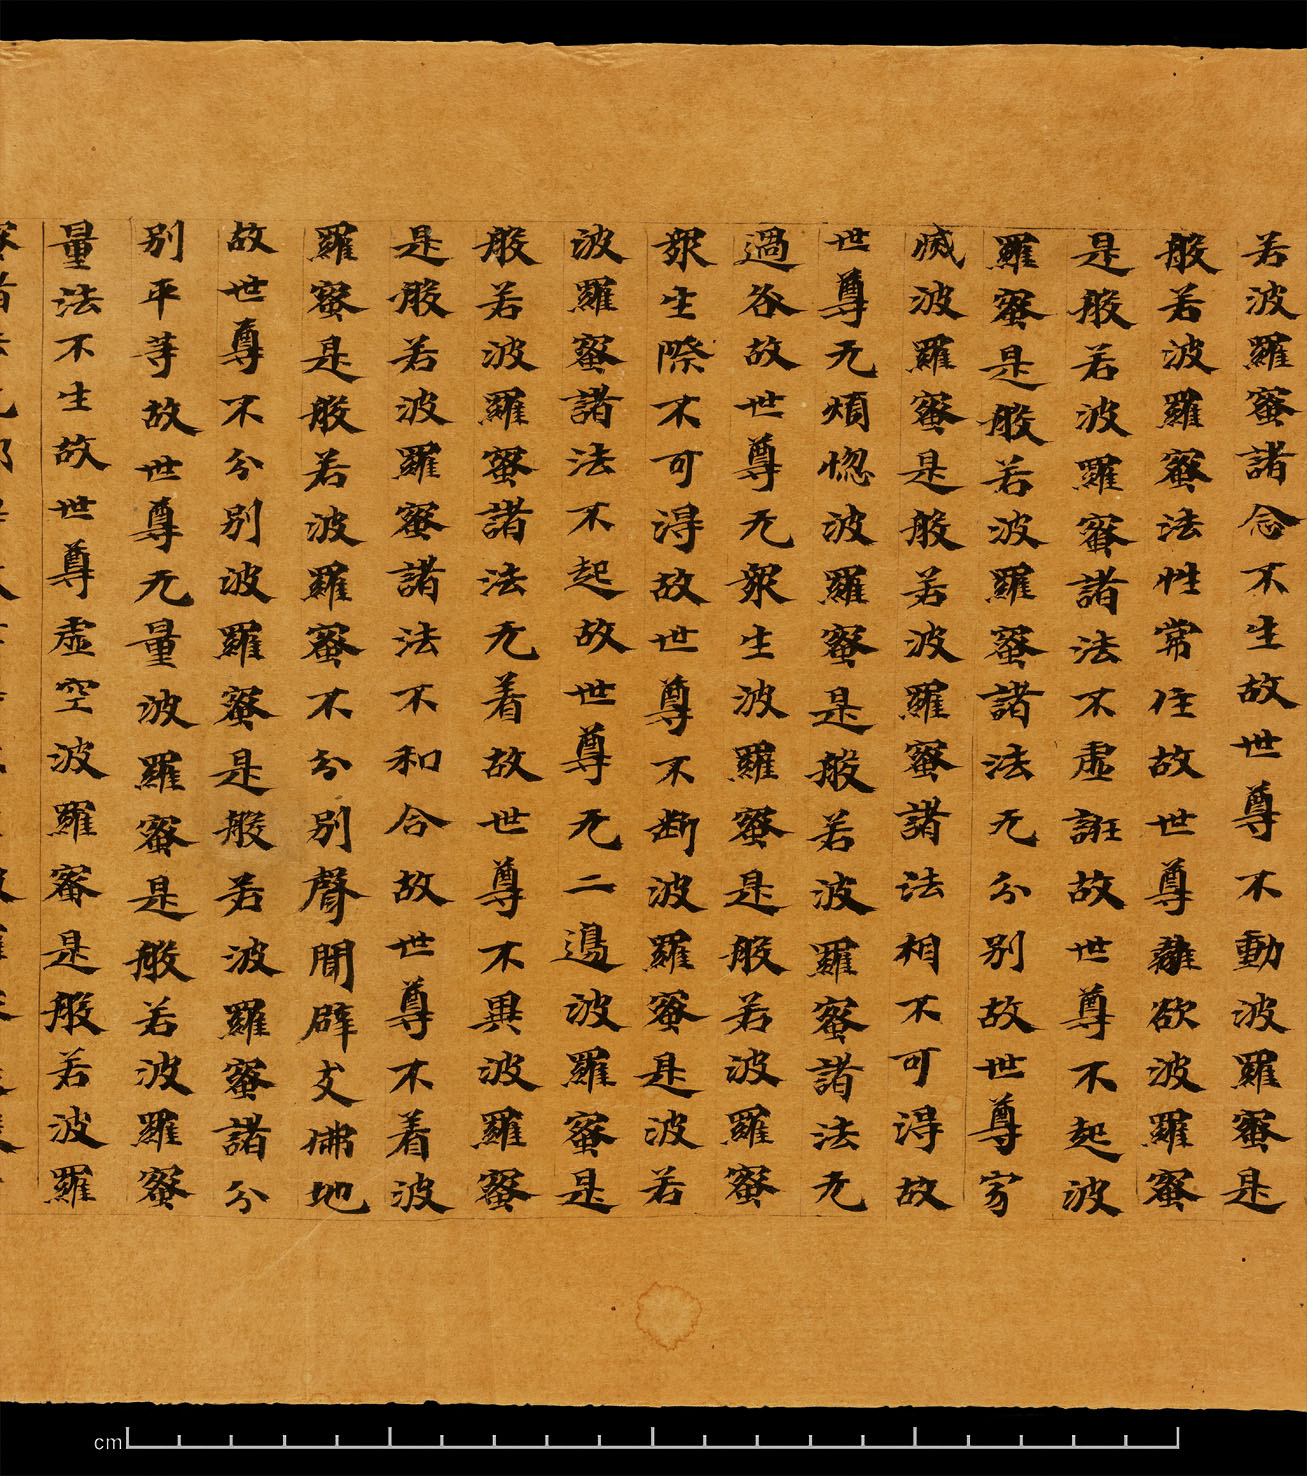 若波羅蜜諸念不生故世尊不動波羅蜜是
般若波羅蜜法性常住故世尊離欲波羅蜜
是般若波羅蜜諸法不虛誑故世尊不起波
羅蜜是般若波羅蜜諸法无分別故世尊寂
滅波羅蜜是般若波羅蜜諸法相不可得故
世尊无煩惚波羅蜜是般若波羅蜜諸法无
過咎故世尊无眾生波羅蜜是般若波羅蜜
眾生際不可得故世尊不斷波羅蜜是波若
波羅蜜諸法不起故世尊无二邊波羅蜜是
般若波羅蜜諸法无着故世尊不異波羅蜜
是般若波羅蜜諸法不和合故世尊不着波
羅蜜是般若波羅蜜不分別聲聞辟支佛地
故世尊不分別波羅蜜是般若波羅蜜諸分
別平等故世尊无量波羅蜜是般若波羅蜜
量法不生故世尊虛空波羅蜜是般若波羅